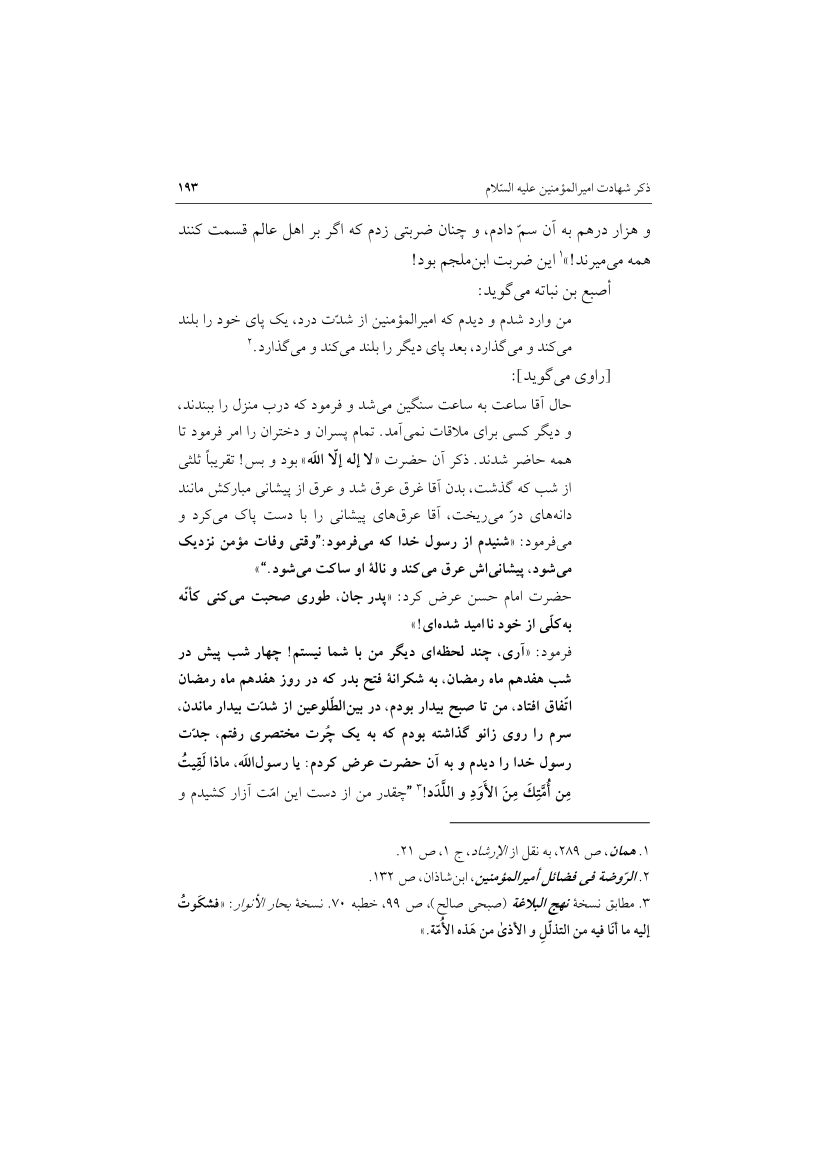 ذکر شهادت امیرالمؤمنین علیه السّلام ۱۹۳
و هزار درهم به آن سمّ دادم، و چنان ضربتی زدم که اگر بر اهل عالم قسمت کنند
همه می‌میرند!»۱ این ضربت ابن‌ملجم بود!
أصبع بن نباته می‌گوید:
من وارد شدم و دیدم که امیرالمؤمنین از شدّت درد، یک پای خود را بلند
می‌کند و می‌گذارد، بعد پای دیگر را بلند می‌کند و می‌گذارد.۲
[راوی می‌گوید]:
حال آقا ساعت به ساعت سنگین می‌شد و فرمود که درب منزل را ببندند،
و دیگر کسی برای ملاقات نمی‌آمد. تمام پسران و دختران را امر فرمود تا
همه حاضر شدند. ذکر آن حضرت «لا إله إلّا الله» بود و بس! تقریباً ثلثی
از شب که گذشت، بدن آقا غرق عرق شد و عرق از پیشانی مبارکش مانند
دانه‌های درّ می‌ریخت، آقا عرق‌های پیشانی را با دست پاک می‌کرد و
می‌فرمود: «شنیدم از رسول خدا که می‌فرمود:”وقتی وفات مؤمن نزدیک
می‌شود، پیشانی‌اش عرق می‌کند و نالهٔ او ساکت می‌شود.“»
حضرت امام حسن عرض کرد: «پدر جان، طوری صحبت می‌کنی کأنّه
به‌کلّی از خود ناامید شده‌ای!»
فرمود: «آری، چند لحظه‌ای دیگر من با شما نیستم! چهار شب پیش در
شب هفدهم ماه رمضان، به شکرانهٔ فتح بدر که در روز هفدهم ماه رمضان
اتّفاق افتاد، من تا صبح بیدار بودم، در بین‌الطّلوعین از شدّت بیدار ماندن،
سرم را روی زانو گذاشته بودم که به یک چُرت مختصری رفتم، جدّت
رسول خدا را دیدم و به آن حضرت عرض کردم: یا رسول‌الله، ماذا لَقِیتُ
مِن أُمَّتِكَ مِنَ الأَوَدِ و اللَّدَد!۳ ”چقدر من از دست این امّت آزار کشیدم و
۱. همان، ص ۲۸۹، به نقل از الإرشاد، ج ۱، ص ۲۱.
۲. الرّوضة فی فضائل أمیرالمؤمنین، ابن‌شاذان، ص ۱۳۲.
۳. مطابق نسخهٔ نهج البلاغة (صبحی صالح)، ص ۹۹، خطبه ۷۰. نسخهٔ بحار الأنوار: «فشکَوتُ
إلیه ما أنَا فیه من التذلّلِ و الأذیٰ من هَذه الأُمّة.»